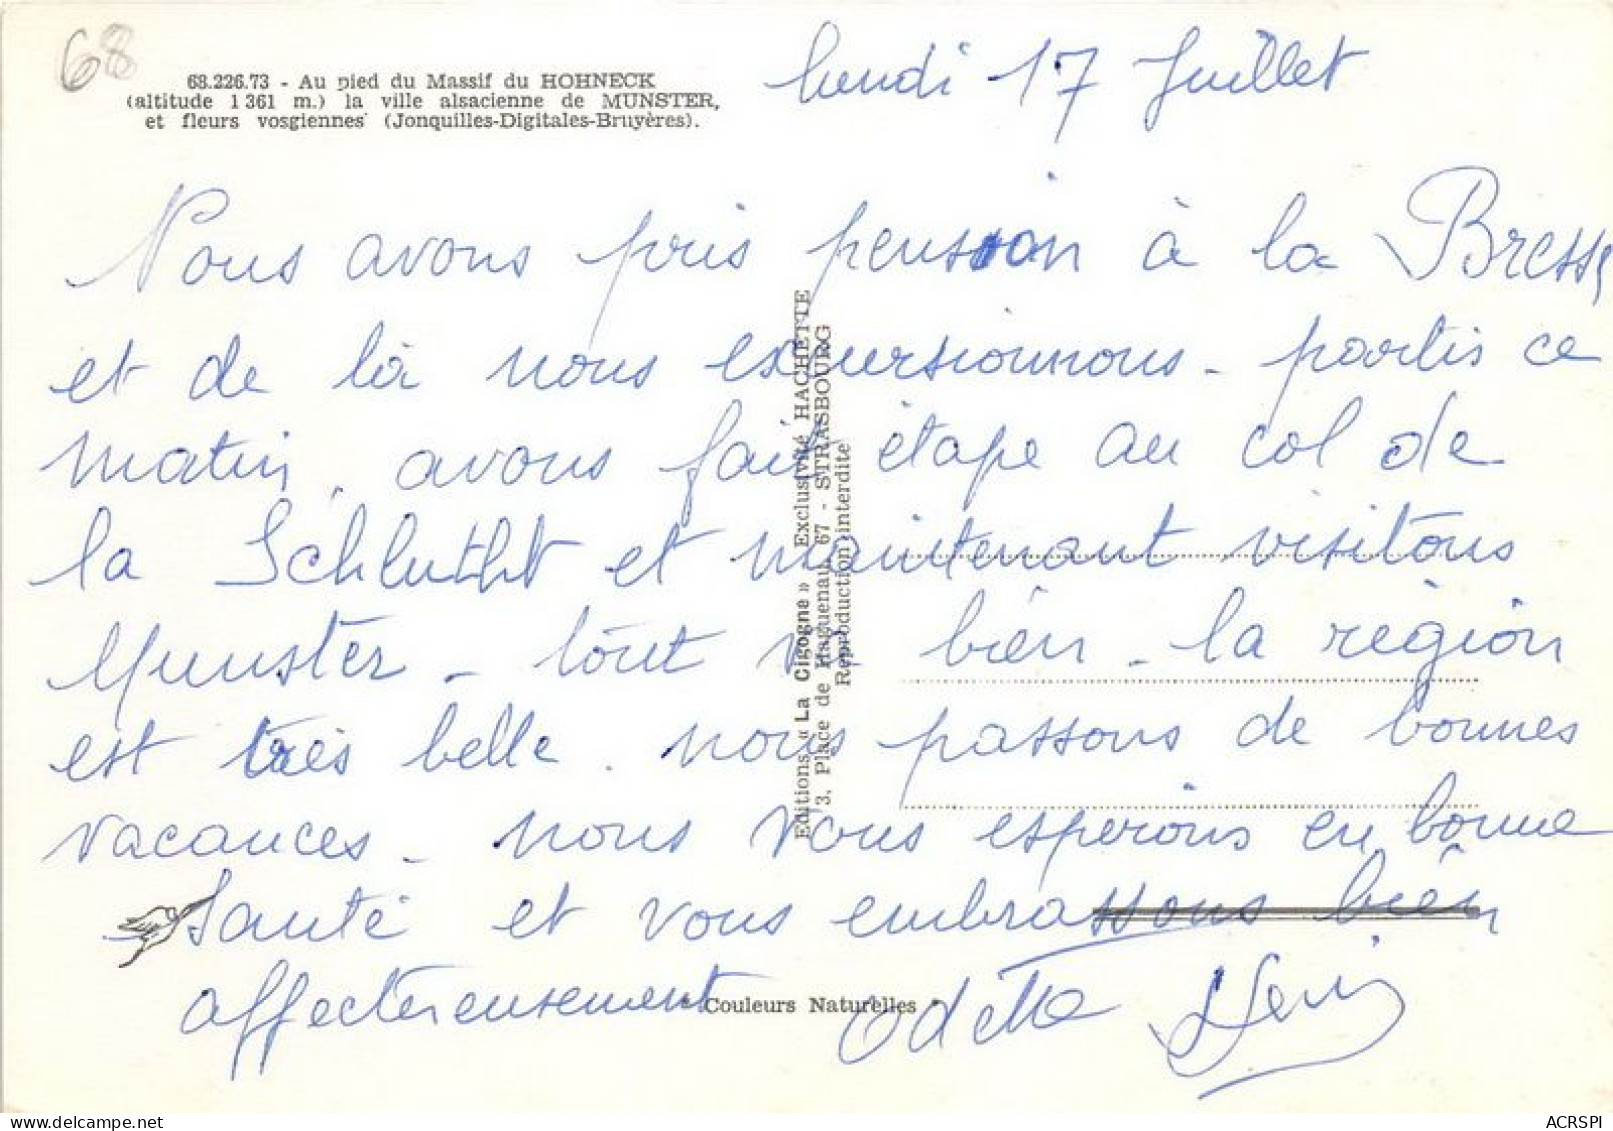 68
68.226.73 - Au pied du Massif du HOHNECK
(altitude 1 361 m.) la ville alsacienne de MUNSTER,
et fleurs vosgiennes (Jonquilles-Digitales-Bruyères).
lundi 17 Juillet
Nous avons pris pension à la Bresse
et de là nous excursionnons - partis ce
matin, avons fait étape au col de
la Schlutht et maintenant visitons
Munster - tout va bien - la région
est très belle. nous passons de bonnes
vacances - nous vous espérons en bonne
santé et vous embrassons bien
affectueusement Odette
Editions « La Cigogne » Exclusivité HACHETTE
3, Place de Haguenau, 67 - STRASBOURG
Reproduction interdite
Couleurs Naturelles
ACRSPI